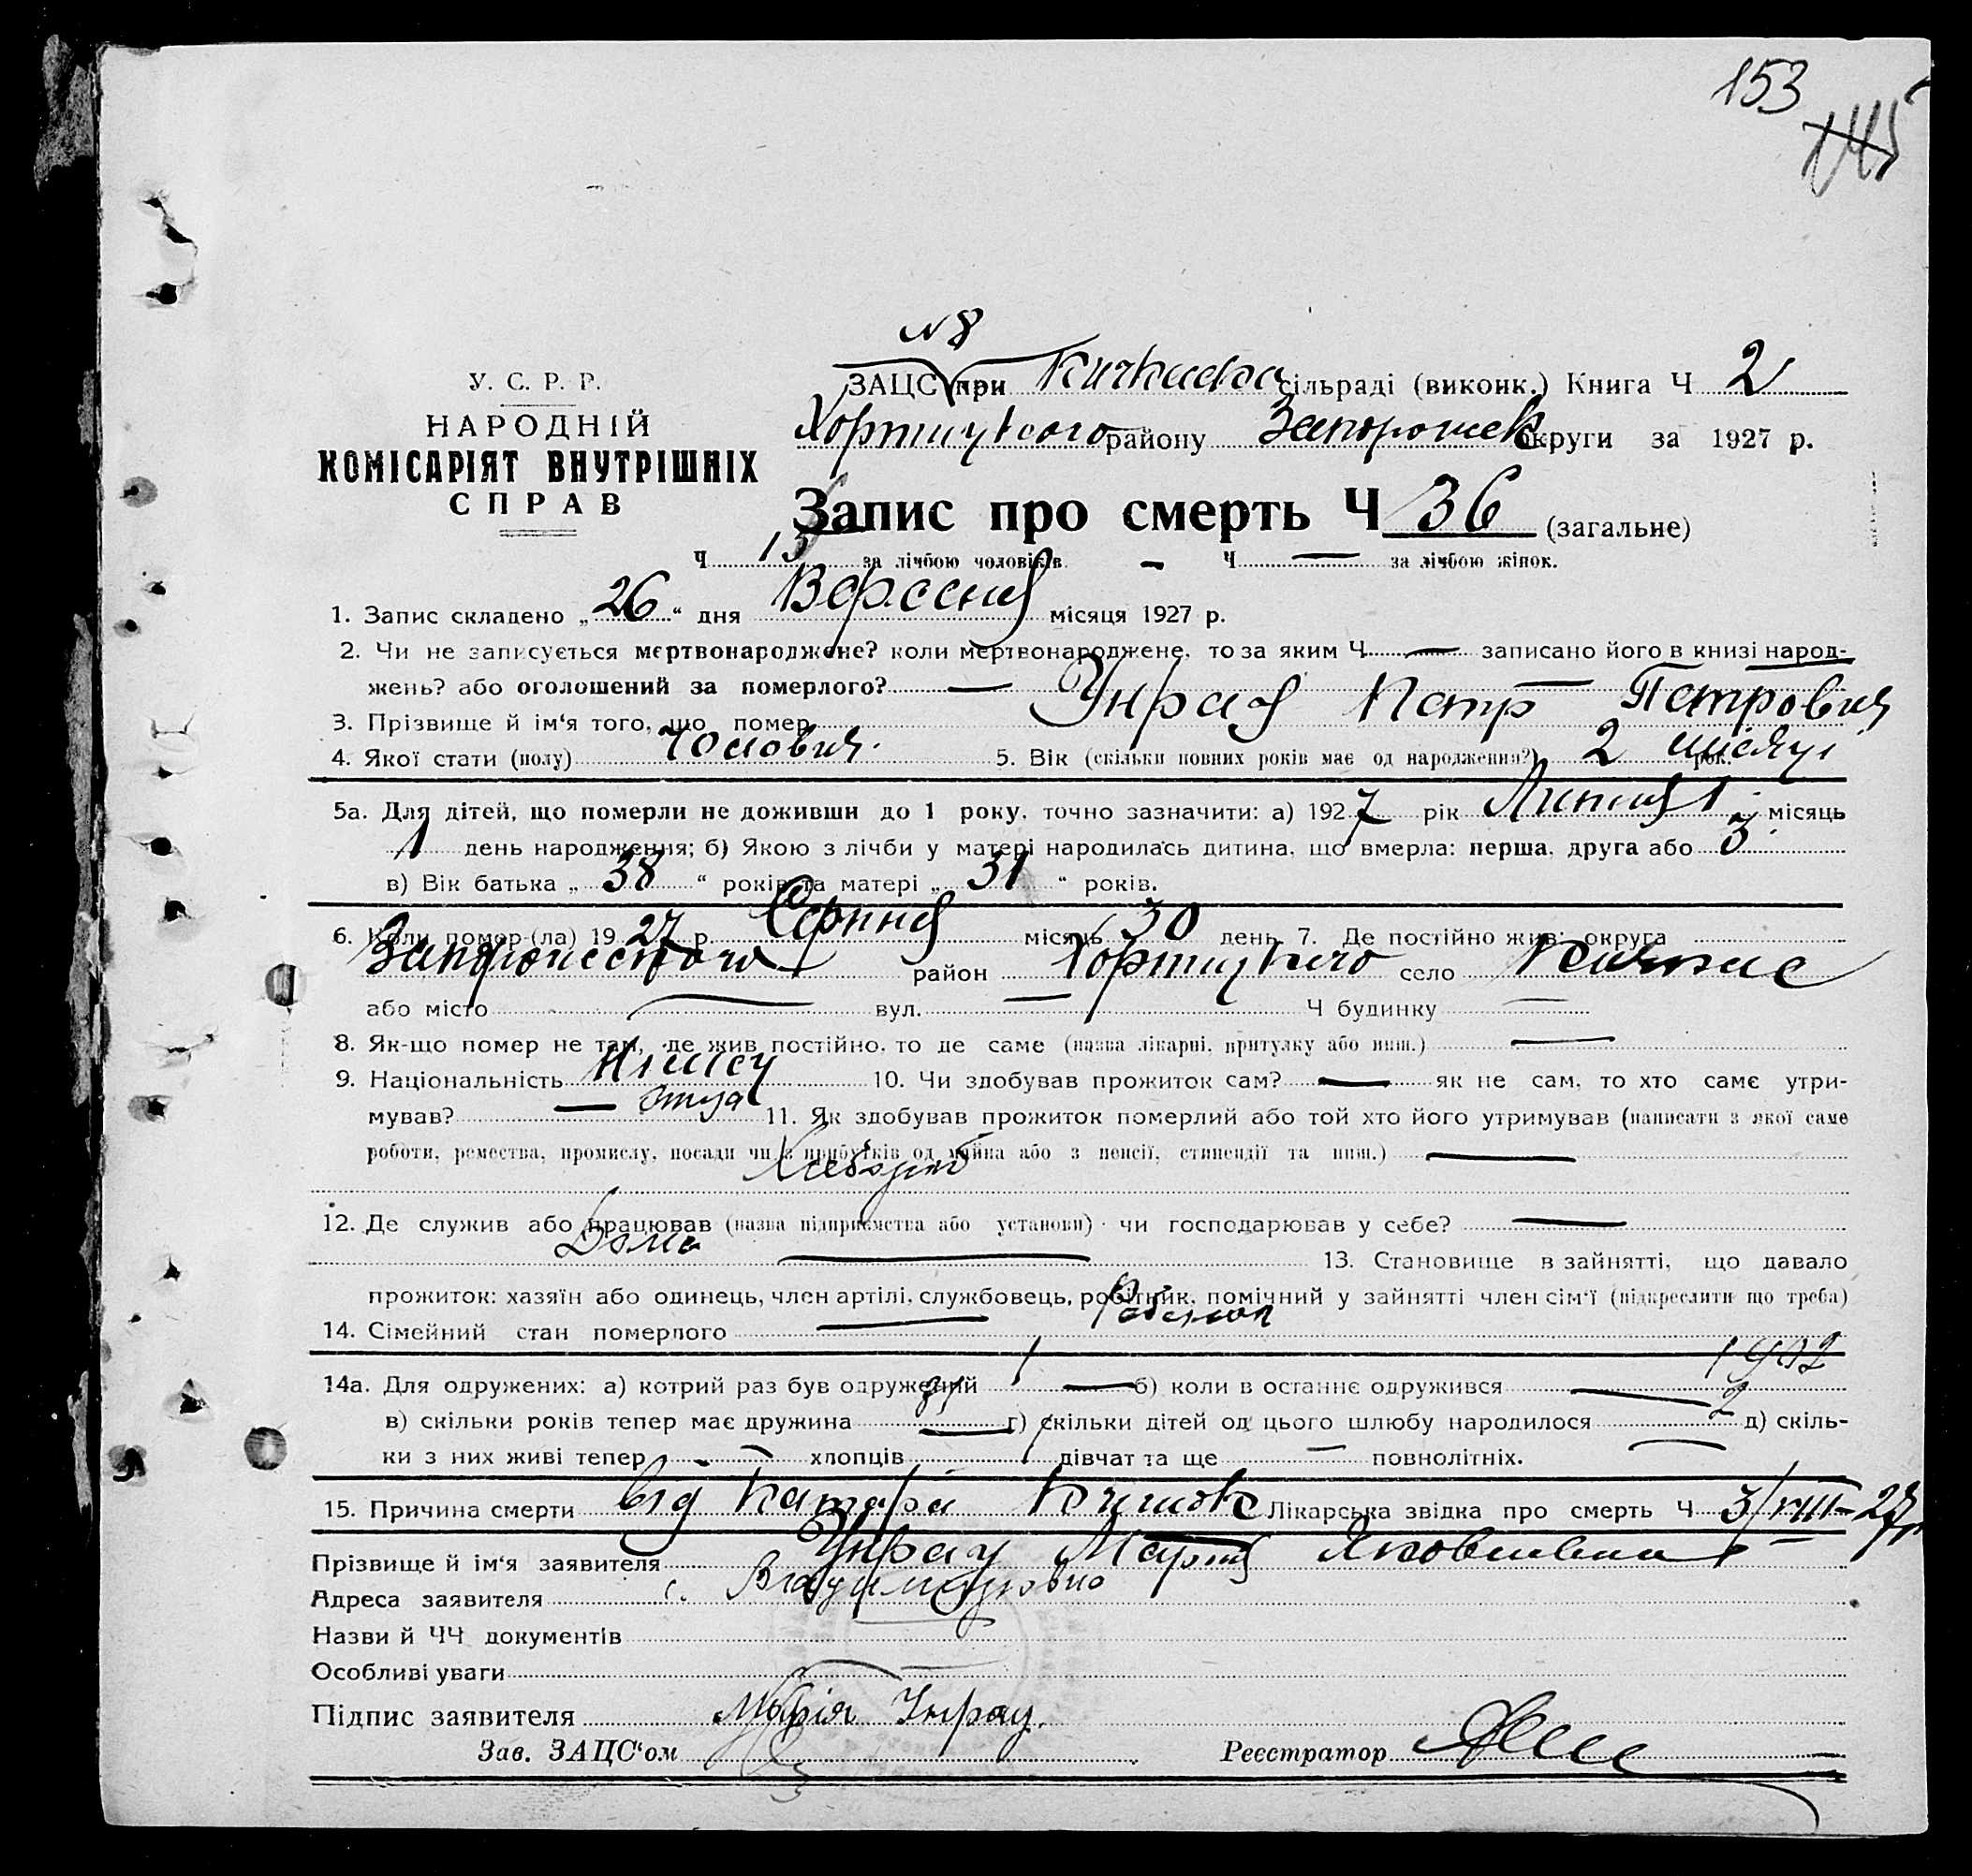 153
145
N 8
У. С. Р. Р.
НАРОДНІЙ
КОМІСАРІЯТ ВНУТРІШНІХ
СПРАВ
ЗАЦС при Кичкаскої сільраді (виконк.) Книга Ч 2
Хортицького району Запорожськ округи за 1927 р.
Запис про смерть Ч 36 (загальне)
Ч 15 за лічбою чоловіків. — Ч — за лічбою жінок.
1. Запис складено „ 26 “ дня Вересня місяця 1927 р.
2. Чи не записується мертвонароджене? коли мертвонароджене, то за яким Ч — записано його в книзі народ-
жень? або оголошений за померлого? —
3. Прізвище й ім‘я того, що помер Унрау Петр Петрович
4. Якої стати (полу) Чоловіч. 5. Вік (скільки повних років має од народження?) 2 місяці рок.
5а. Для дітей, що померли не доживши до 1 року, точно зазначити: а) 1927 рік Липня 1 місяць
1 день народження; б) Якою з лічби у матері народилась дитина, що вмерла: перша, друга або 3
в) Вік батька „ 38 “ років та матері „ 31 “ років.
6. Коли помер-(ла) 1927 р. Серпня місяць 30 день 7. Де постійно жив: округа
Запорожського район Хортицького село Кичкас
або місто — вул. — Ч будинку —
8. Як-що помер не там, де жив постійно, то де саме (назва лікарні, притулку або инш.) —
9. Національність Німец 10. Чи здобував прожиток сам? — як не сам, то хто саме утри-
мував? — отца 11. Як здобував прожиток померлий або той хто його утримував (написати з якої саме
роботи, ремества, промислу, посади чи з прибутків од майна або з пенсії, стипендії та инш.) —
Хлебороб
12. Де служив або працював (назва підприємства або установи) чи господарював у себе? —
Дома — 13. Становище в зайнятті, що давало
прожиток: хазяїн або одинець, член артілі, службовець, робітник, помічний у зайнятті член сім‘ї (підкреслити що треба)
14. Сімейний стан померлого —
14а. Для одружених: а) котрий раз був одружений 1 — б) коли в останнє одружився —
в) скільки років тепер має дружина 31 — г) скільки дітей од цього шлюбу народилося 2 д) скіль-
ки з них живі тепер — хлопців 1 дівчат та ще — повнолітніх. —
15. Причина смерти від Катара Кишок Лікарська звідка про смерть Ч 3/VIII-27р
Прізвище й ім‘я заявителя Унрау Марія Яковлевна
Адреса заявителя с.
Назви й ЧЧ документів
Особливі уваги —
Підпис заявителя Марія Унрау.
Зав. ЗАЦС‘ом Реєстратор